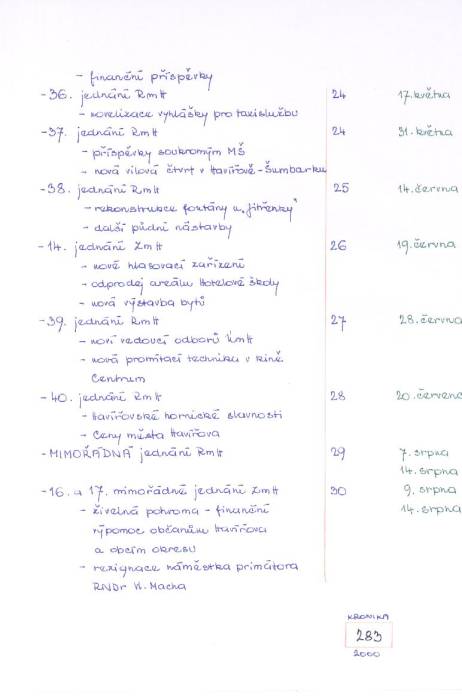 - finanční příspěvky
-36. jednání RmH 24 17. května
- novelizace vyhlášky pro taxislužbu
-37. jednání RmH 24 31. května
- příspěvky soukromým MŠ
- nová vilová čtvrt v Havířově-Šumbarku
-38. jednání RmH 25 14. června
- rekonstrukce fontány u „Jitřenky“
- další půdní nástavby
-14. jednání ZmH 26 19. června
- nové hlasovací zařízení
- odprodej areálu Hotelové školy
- nová výstavba bytů
-39. jednání RmH 27 28. června
- noví vedoucí odborů ÚmH
- nová promítací technika v kině
Centrum
-40. jednání RmH 28 20. července
- Havířovské hornické slavnosti
- Ceny města Havířova
-MIMOŘÁDNÁ jednání RmH 29 7. srpna
14. srpna
-16. a 17. mimořádné jednání ZmH 30 9. srpna
- živelná pohroma - finanční 14. srpna
výpomoc občanům Havířova
a obcím okresu
- rezignace náměstka primátora
RNDr K. Macha
KRONIKA
283
2000